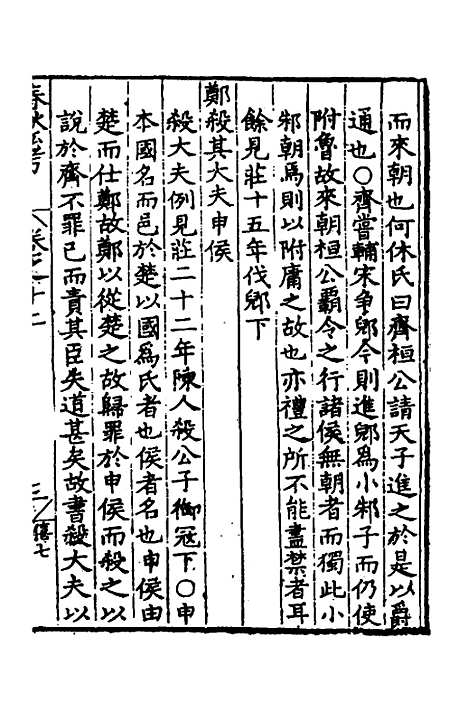 而來朝也何休氏曰齊桓公請天子進之於是以爵
通也○齊嘗輔宋争郳今則進郳為小邾子而仍使
附魯故來朝桓公霸令之行諸侯無朝者而獨此小
邾朝焉則以附庸之故也亦禮之所不能盡禁者耳
餘見莊十五年伐郳下
鄭殺其大夫申侯
殺大夫例見莊二十二年陳人殺公子御寇下○申
本國名而邑於楚以國為氏者也侯者名也申侯由
楚而仕鄭故鄭以從楚之故歸罪於申侯而殺之以
說於齊不罪己而責其臣失道甚矣故書殺大夫以
春秋 卷之十二 三 僖七